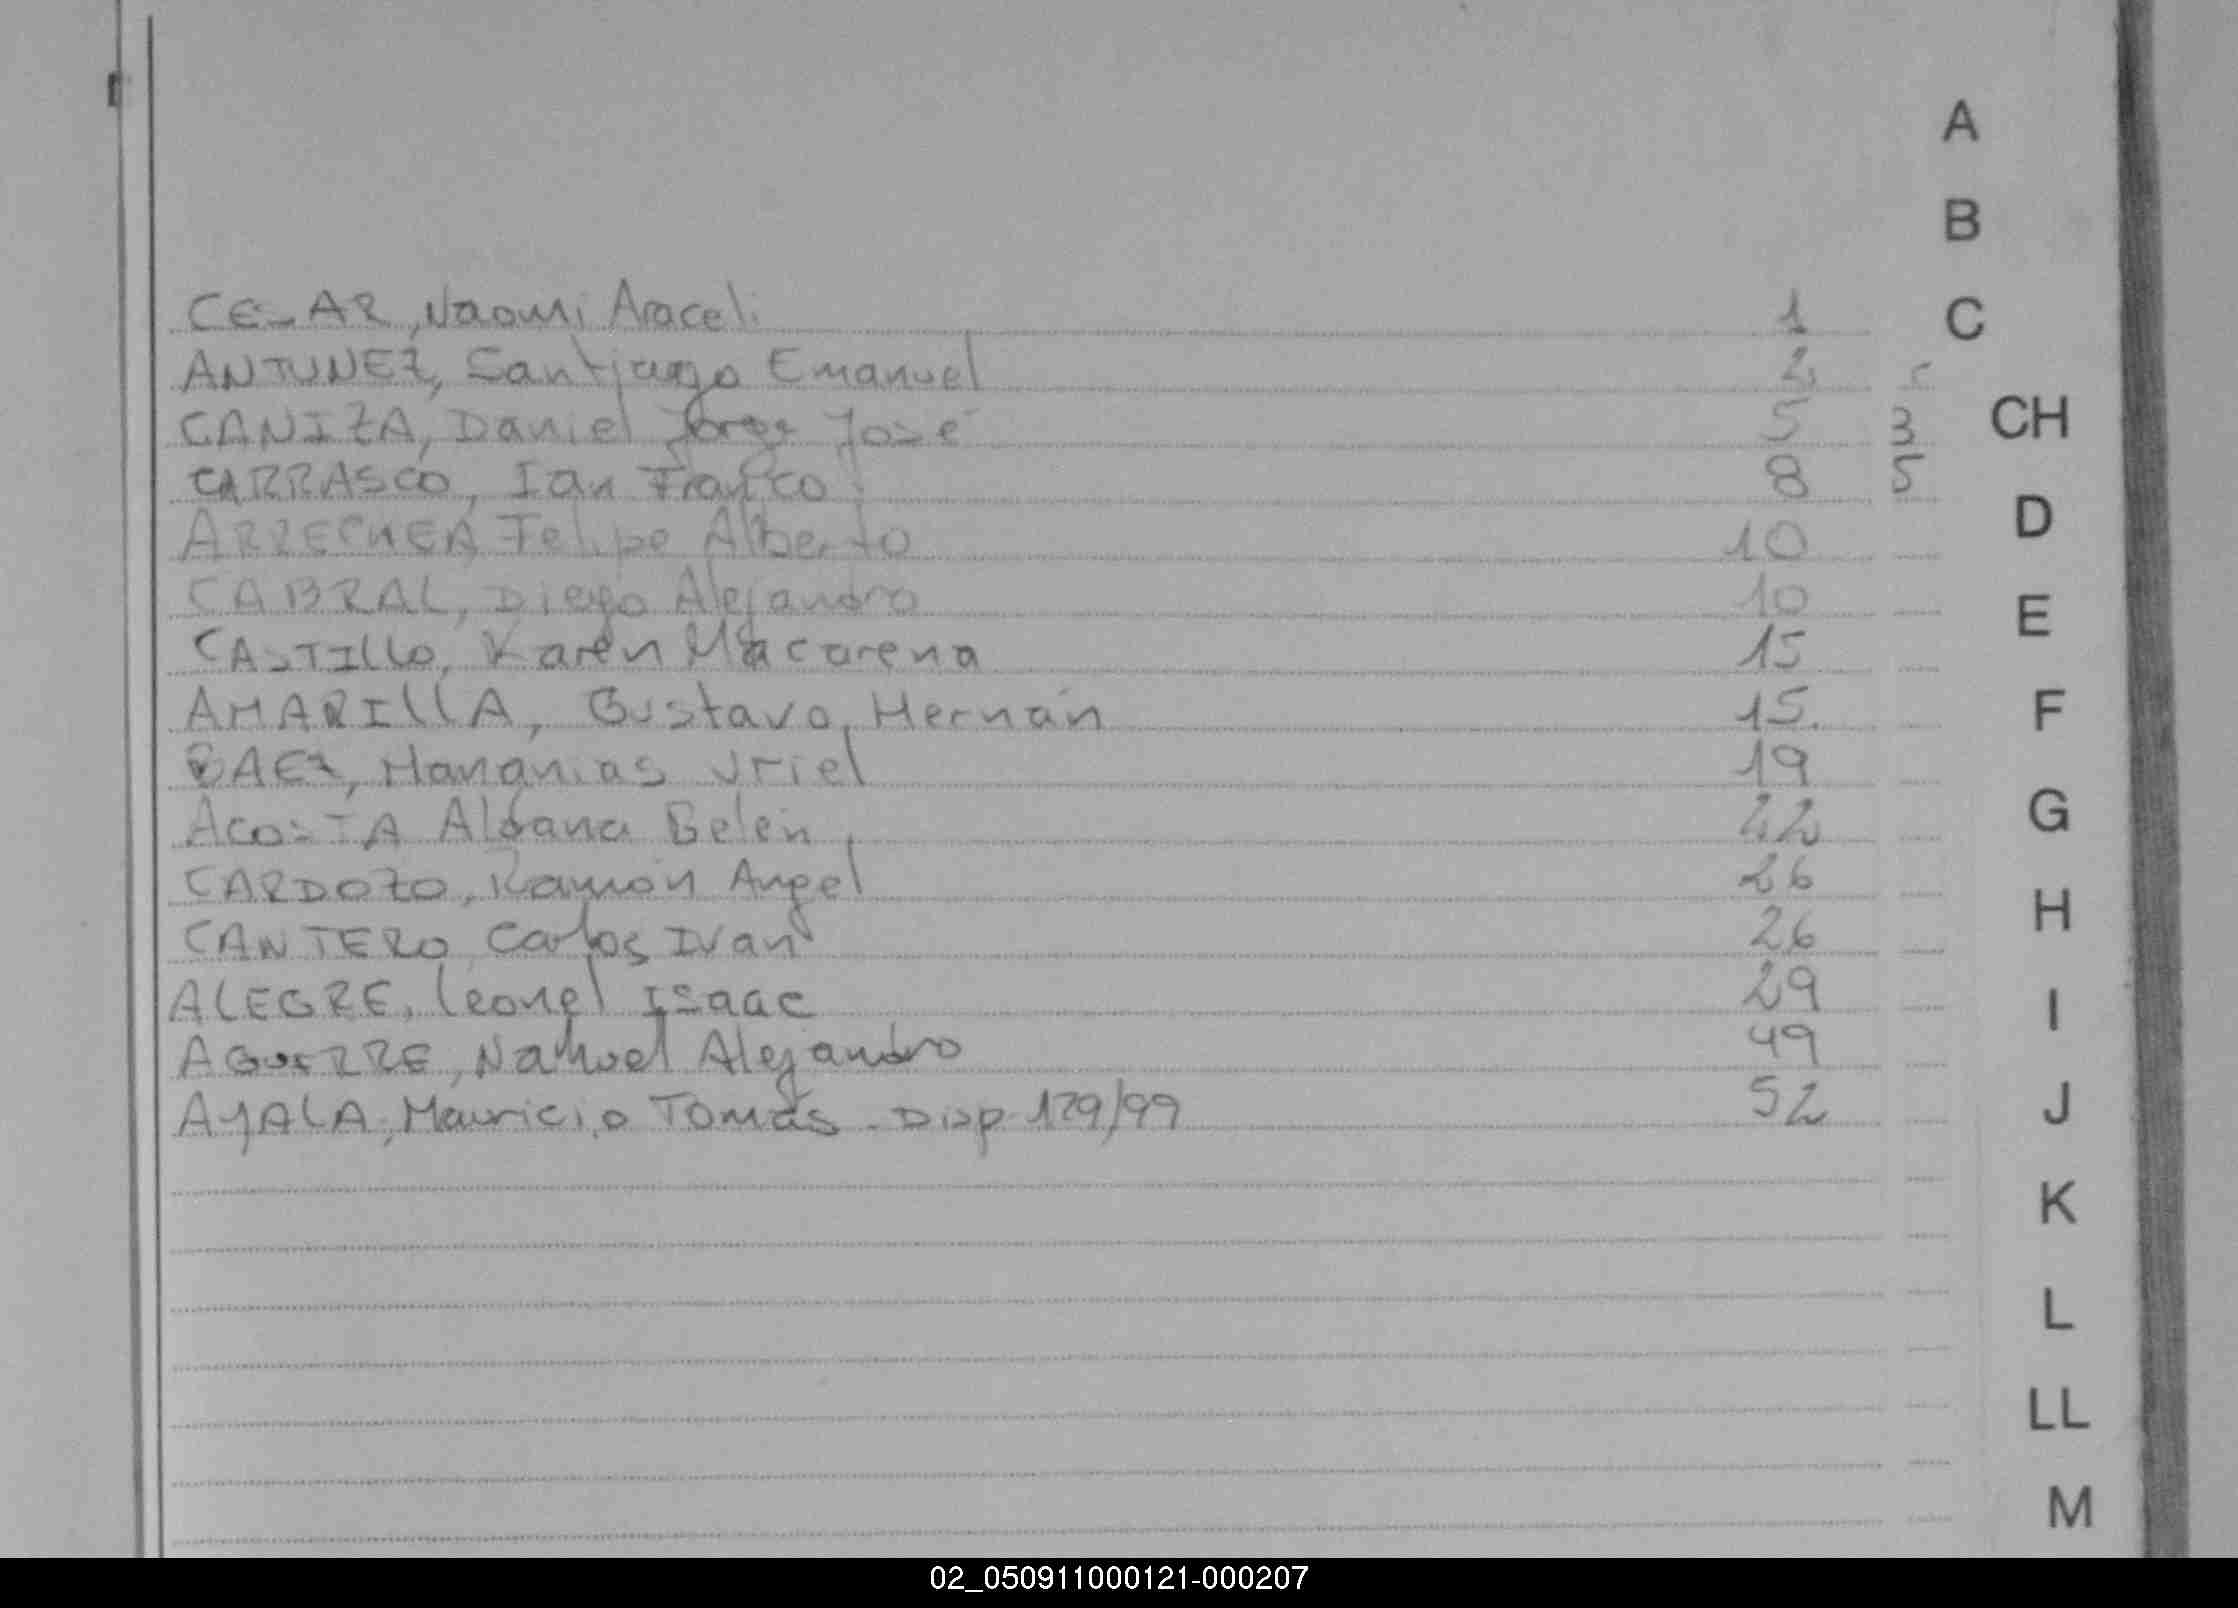 A
B
CESAR, Naomi Araceli 1 C
ANTUNEZ, Santiago Emanuel 2
CANIZA, Daniel Jorge José 5 3 CH
CARRASCO, Ian Franco 8 5
ARRECHEA Felipe Alberto 10 D
CABRAL, Diego Alejandro 10 E
CASTILLO, Karen Macarena 15
AMARILLA, Gustavo Hernán 15. F
BAEZ, Hananias Uriel 19
ACOSTA Aldana Belén 22 G
CARDOZO, Ramón Angel 26
CANTERO Carlos Ivan 26 H
ALEGRE, Leonel Isaac 29 I
AGUIRRE, Nahuel Alejandro 49
AYALA, Mauricio Tomás - Disp 129/99 52 J
K
L
LL
M
02_050911000121-000207